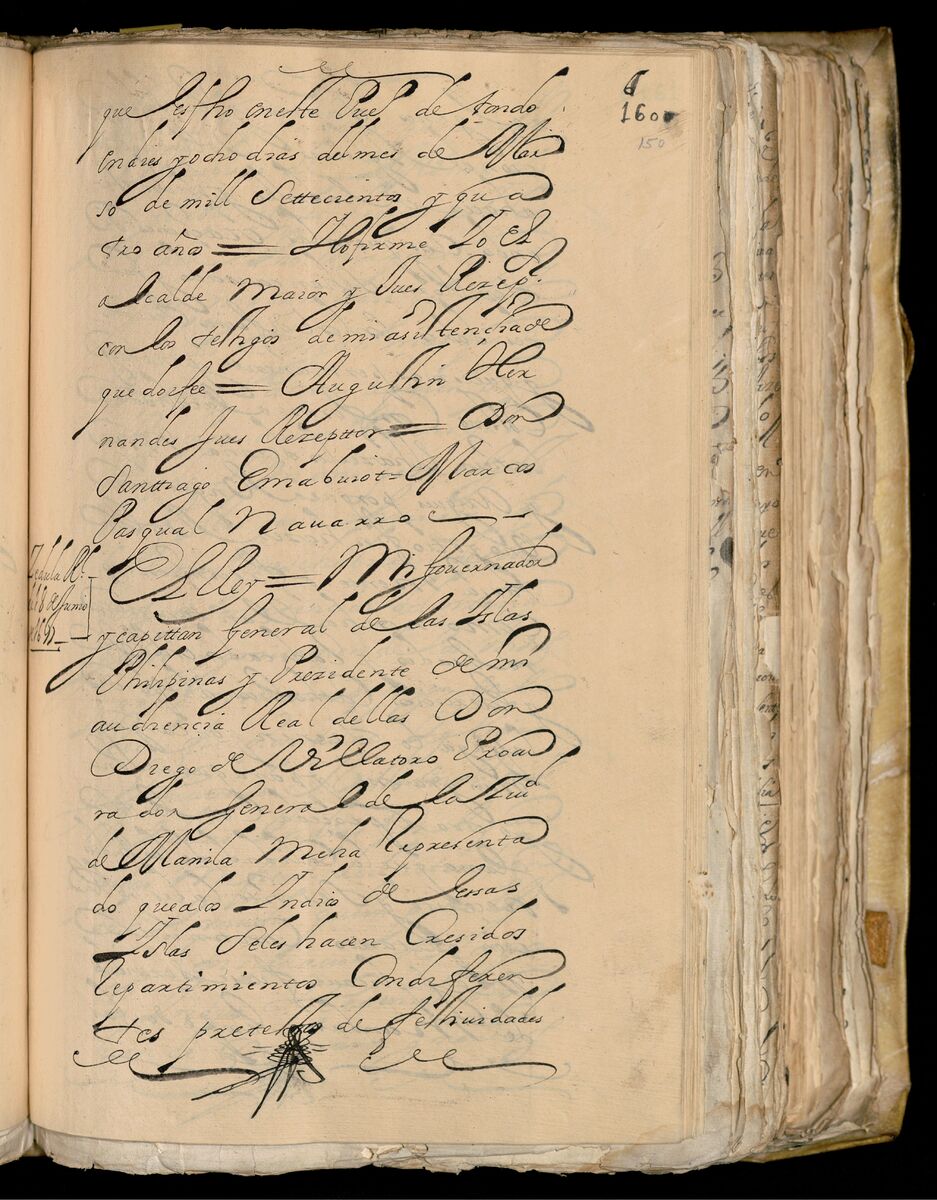 160
150
que es fho en este Pueo de tondo
en dies y ocho dias del mes de Mar
so de mill Settecientos y qua
tro años = Y lo firme Yo El
alcalde maior y Jues Rezepr
con los testigos de mi asistencia de
que doi fee = Augustin Her
nandes Jues Rezepttor = Don
Santtiago Marcos
Pasqual Nauarro
Zedula Rl
18 de Junio
El Rey = Mi Gouernador
y capittan General de las Islas
Philipinas y Prezidente de mi
audiencia Real dellas Don
Diego de Villatoro Procu
rador General de la Ziud
de Manila me ha rrepresenta
do que a los Indios de essas
Islas se les hacen Cresidos
rrepartimientos Con diferen
tes pretestos de festiuidades